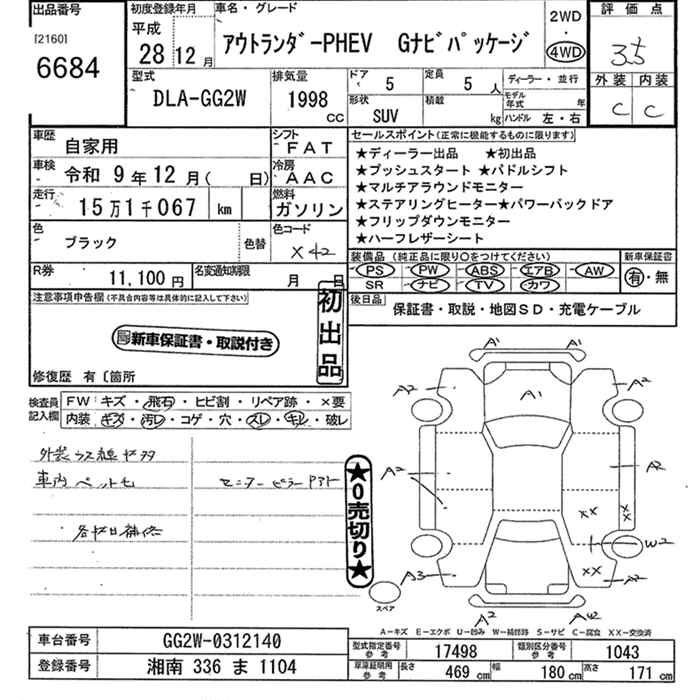 出品番号
[2160]
6684
初度登録年月
平成
28 12 月
車名・グレード
アウトランダーPHEV Gナビパッケージ
2WD
・
4WD
評価点
3.5
外装 内装
C C
型式
DLA-GG2W
排気量
1998 CC
ドア 5
定員 5 人
形状 SUV
積載 kg
ディーラー・並行
モデル年式 年
ハンドル 左・右
車歴 自家用
車検 令和 9年 12月( 日)
走行 15万1千067 km
シフト FAT
冷房 AAC
燃料 ガソリン
色 ブラック
色替
色コード X42
R券 11,100 円
名変通知期限 月 日
セールスポイント(正常に機能するものに限ります)
★ディーラー出品 ★初出品
★プッシュスタート ★パドルシフト
★マルチアラウンドモニター
★ステアリングヒーター★パワーバックドア
★フリップダウンモニター
★ハーフレザーシート
装備品 (純正品に限り○をつけてください)
PS PW ABS エアB AW
SR ナビ TV カワ
新車保証書
有・無
後日品
保証書・取説・地図SD・充電ケーブル
注意事項申告欄(不具合内容等は具体的に記入して下さい)
新車保証書・取説付き
初出品
修復歴 有〔箇所
検査員記入欄
FW キズ・飛石・ヒビ割・リペア跡・×要
内装 キズ・汚レ・コゲ・穴・スレ・キレ・破レ
車内
★0売切り★
A1 A1
A2 A1 A2
A2 A2
XX XX
W2
A3 XX A2
A2 A2
スペア
A-キズ E-エクボ U-凹み W-補修跡 S-サビ C-腐食 XX-交換済
車台番号 GG2W-0312140
登録番号 湘南 336 ま 1104
型式指定番号 参考 17498
類別区分番号 参考 1043
車庫証明用 参考 長さ 469 cm 幅 180 cm 高さ 171 cm